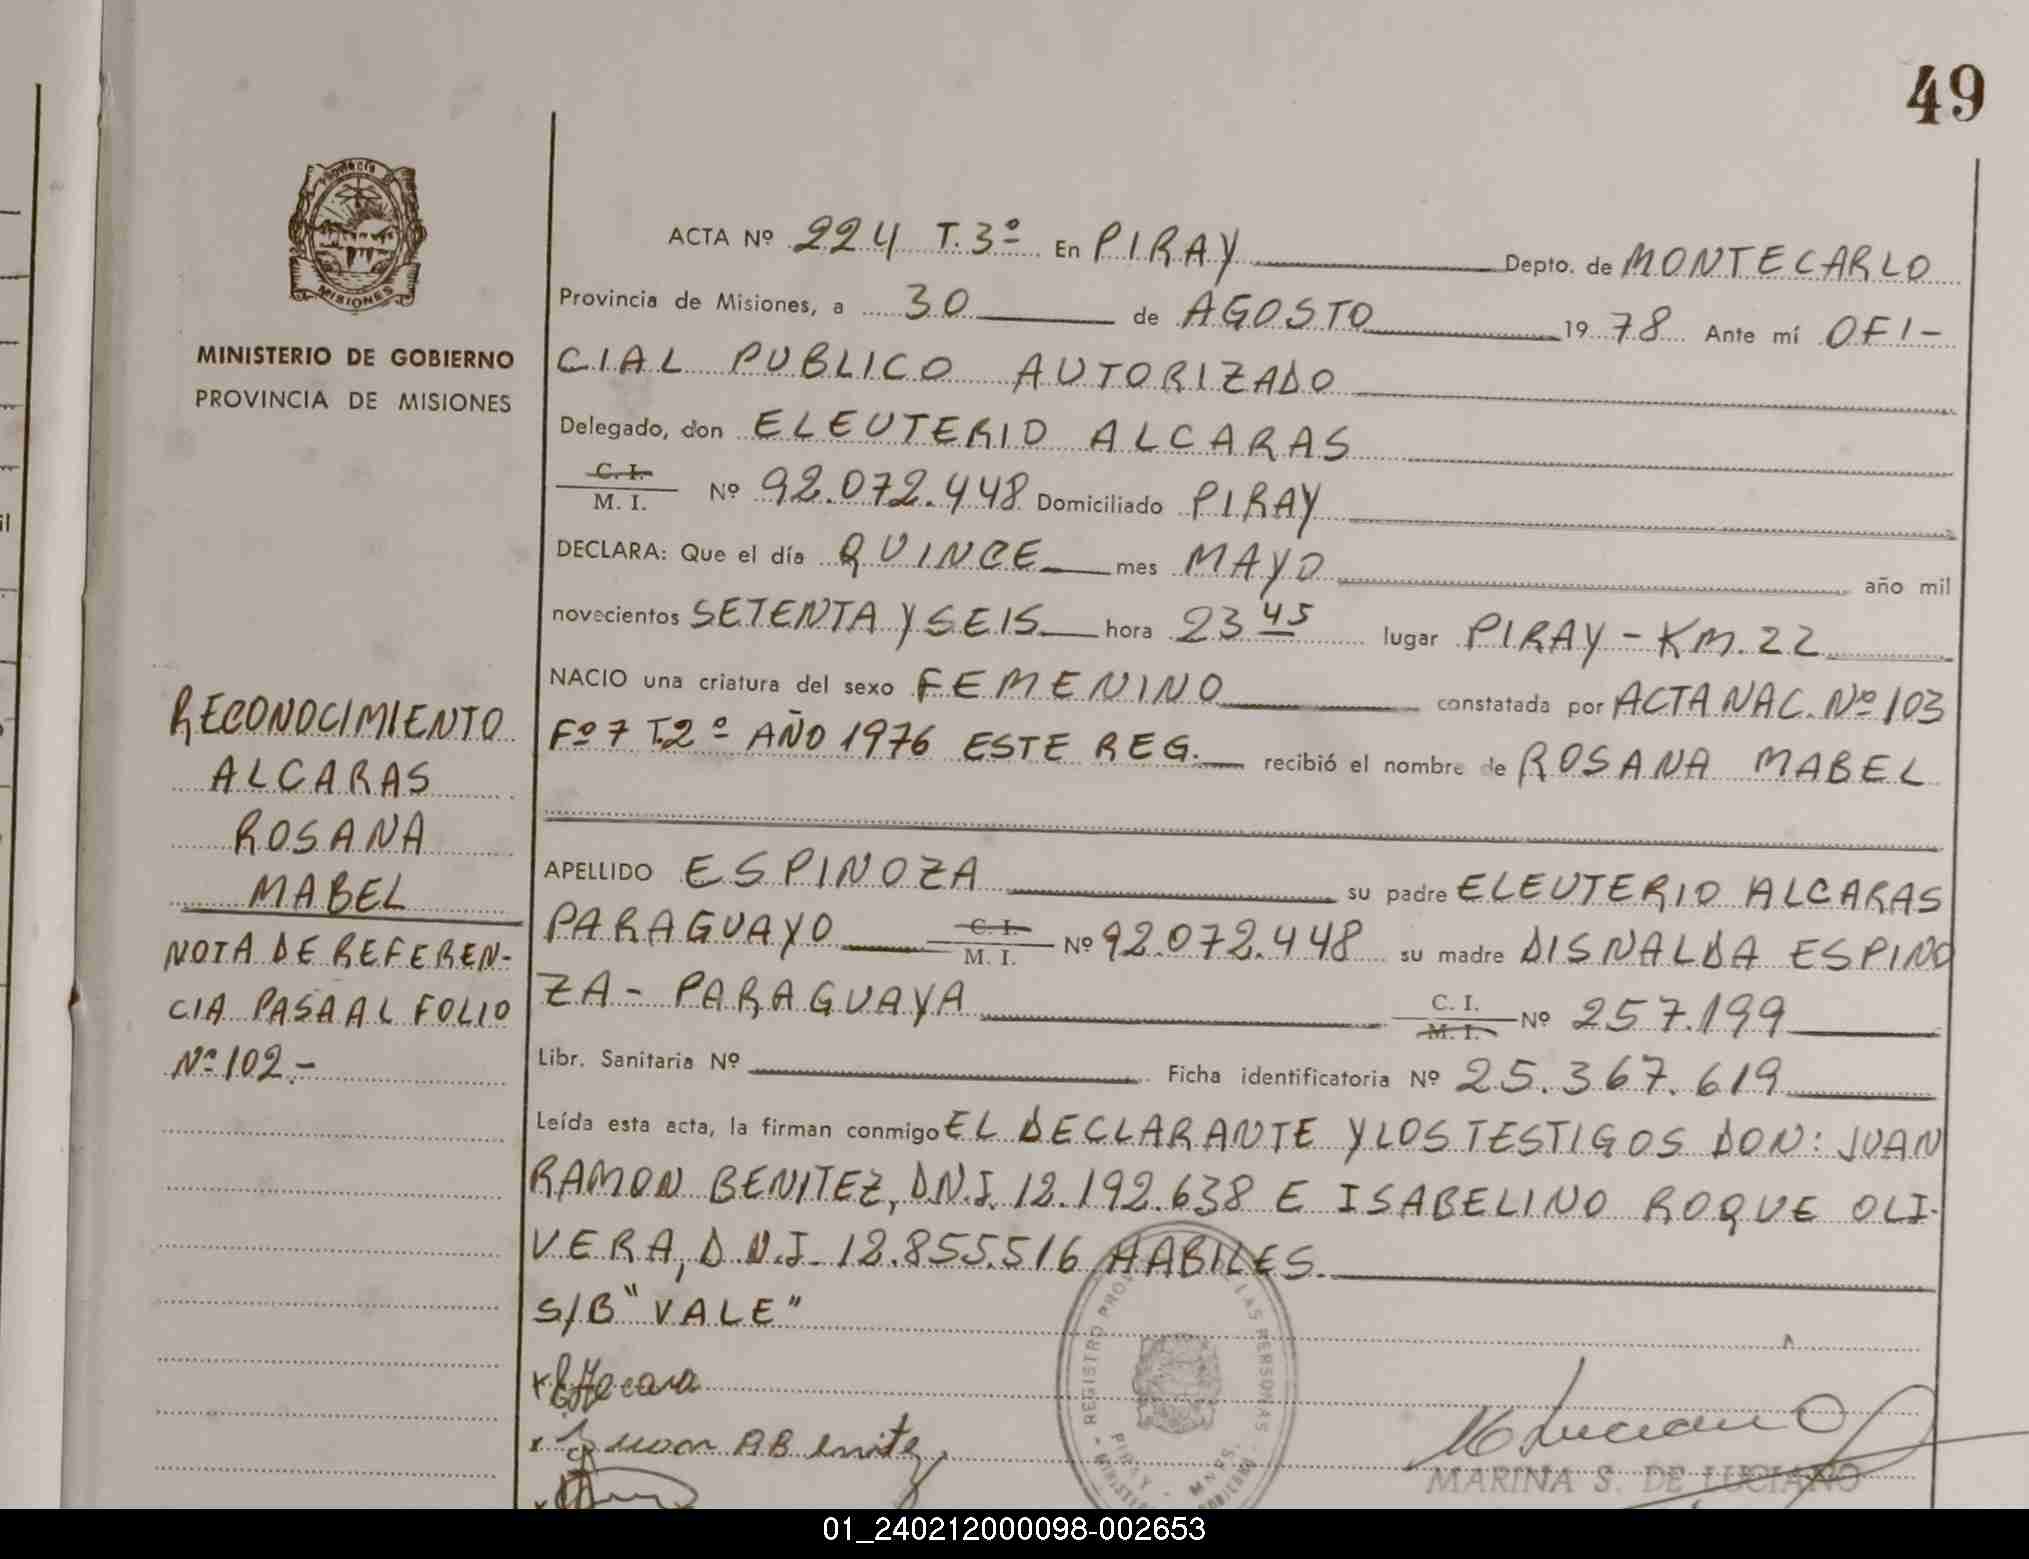 49
Provincia de
MISIONES
MINISTERIO DE GOBIERNO
PROVINCIA DE MISIONES
RECONOCIMIENTO
ALCARAS
ROSANA
MABEL
NOTA DE REFEREN-
CIA PASA AL FOLIO
Nº 102.-
ACTA Nº 224 T. 3º En PIRAY Depto. de MONTECARLO
Provincia de Misiones, a 30 de AGOSTO 1978 Ante mí OFI-
CIAL PUBLICO AUTORIZADO
Delegado, don ELEUTERIO ALCARAS
C. I.
M. I. Nº 92.072.448 Domiciliado PIRAY
DECLARA: Que el día QUINCE mes MAYO año mil
novecientos SETENTA Y SEIS hora 23 45 lugar PIRAY - KM. 22
NACIO una criatura del sexo FEMENINO constatada por ACTA NAC. Nº 103
Fº 7 T.2º AÑO 1976 ESTE REG. recibió el nombre de ROSANA MABEL
APELLIDO ESPINOZA su padre ELEUTERIO ALCARAS
PARAGUAYO C. I.
M. I. Nº 92.072.448 su madre DISNALDA ESPINO
ZA - PARAGUAYA C. I.
M. I. Nº 257.199
Libr. Sanitaria Nº Ficha identificatoria Nº 25.367.619
Leída esta acta, la firman conmigo EL DECLARANTE Y LOS TESTIGOS DON: JUAN
RAMON BENITEZ, D.N.I. 12.192.638 E ISABELINO ROQUE OLI-
VERA, D.N.I. 12.855.516 HABILES.
S/B "VALE"
REGISTRO PROV LAS PERSONAS
PIRAY - MNES.
Juan R B enitez
M Luciano
MARINA S. DE LUCIANO
01_240212000098-002653